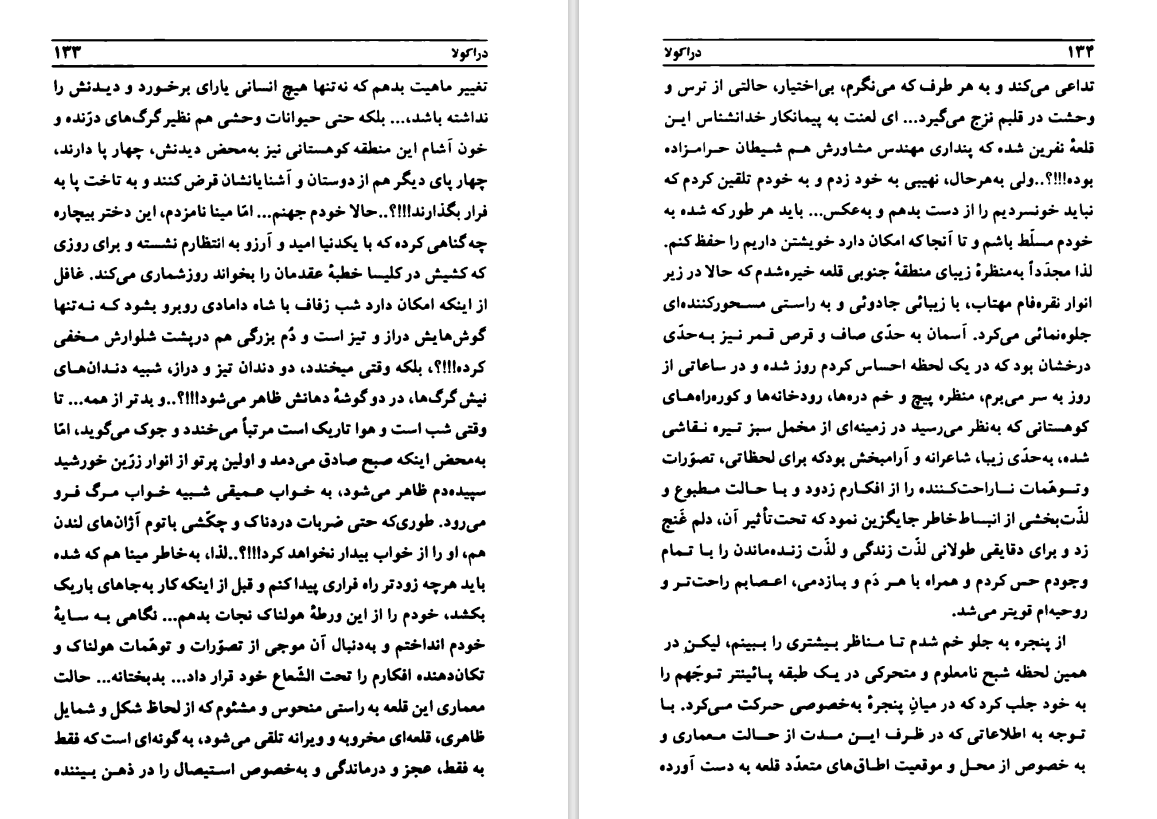 دراکولا ۱۳۳
تغییر ماهیت بدهم که نه‌تنها هیچ انسانی یارای برخورد و دیدنش را
نداشته باشد،... بلکه حتی حیوانات وحشی هم نظیر گرگ‌های درّنده و
خون آشام این منطقه کوهستانی نیز به‌محض دیدنش، چهار پا دارند،
چهار پای دیگر هم از دوستان و آشنایانشان قرض کنند و به تاخت پا به
فرار بگذارند!!!؟..حالا خودم جهنم... امّا مینا نامزدم، این دختر بیچاره
چه گناهی کرده که با یکدنیا امید و آرزو به انتظارم نشسته و برای روزی
که کشیش در کلیسا خطبهٔ عقدمان را بخواند روزشماری می‌کند. غافل
از اینکه امکان دارد شب زفاف با شاه دامادی روبرو بشود که نه‌تنها
گوش‌هایش دراز و تیز است و دُم بزرگی هم درپشت شلوارش مخفی
کرده!!!؟، بلکه وقتی میخندد، دو دندان تیز و دراز، شبیه دندان‌های
نیش گرگ‌ها، در دو گوشهٔ دهانش ظاهر می‌شود!!!؟..و بدتر از همه... تا
وقتی شب است و هوا تاریک است مرتباً می‌خندد و جوک می‌گوید، امّا
به‌محض اینکه صبح صادق می‌دمد و اولین پرتو از انوار زرّین خورشید
سپیده‌دم ظاهر می‌شود، به خواب عمیقی شبیه خواب مرگ فرو
می‌رود. طوری‌که حتی ضربات دردناک و چکّشی باتوم آژان‌های لندن
هم، او را از خواب بیدار نخواهد کرد!!!؟..لذا، به‌خاطر مینا هم که شده
باید هرچه زودتر راه فراری پیدا کنم و قبل از اینکه کار به‌جاهای باریک
بکشد، خودم را از این ورطهٔ هولناک نجات بدهم... نگاهی به سایهٔ
خودم انداختم و به‌دنبال آن موجی از تصوّرات و توهّمات هولناک و
تکان‌دهنده افکارم را تحت الشّعاع خود قرار داد... بدبختانه... حالت
معماری این قلعه به راستی منحوس و مشئوم که از لحاظ شکل و شمایل
ظاهری، قلعه‌ای مخروبه و ویرانه تلقی می‌شود، به‌گونه‌ای است که فقط
به فقط، عجز و درماندگی و به‌خصوص استیصال را در ذهن بیننده
۱۳۴ دراکولا
تداعی می‌کند و به هر طرف که می‌نگرم، بی‌اختیار، حالتی از ترس و
وحشت در قلبم نزج می‌گیرد... ای لعنت به پیمانکار خدانشناس این
قلعهٔ نفرین شده که پنداری مهندس مشاورش هم شیطان حرامزاده
بوده!!!؟..ولی به‌هرحال، نهیبی به خود زدم و به خودم تلقین کردم که
نباید خونسردیم را از دست بدهم و به‌عکس... باید هر طور که شده به
خودم مسلّط باشم و تا آنجا که امکان دارد خویشتن داریم را حفظ کنم.
لذا مجدّداً به‌منظرهٔ زیبای منطقهٔ جنوبی قلعه خیره‌شدم که حالا در زیر
انوار نقره‌فام مهتاب، با زیبائی جادوئی و به راستی مسحورکننده‌ای
جلوه‌نمائی می‌کرد. آسمان به حدّی صاف و قرص قمر نیز به‌حدّی
درخشان بود که در یک لحظه احساس کردم روز شده و در ساعاتی از
روز به سر می‌برم، منظره پیچ و خم دره‌ها، رودخانه‌ها و کوره‌راه‌های
کوهستانی که به‌نظر می‌رسید در زمینه‌ای از مخمل سبز تیره نقاشی
شده، به‌حدّی زیبا، شاعرانه و آرامبخش بودکه برای لحظاتی، تصوّرات
وتوهّمات ناراحت‌کننده را از افکارم زدود و با حالت مطبوع و
لذّت‌بخشی از انبساط‌خاطر جایگزین نمود که تحت‌تأثیر آن، دلم غَنج
زد و برای دقایقی طولانی لذّت زندگی و لذّت زنده‌ماندن را با تمام
وجودم حس کردم و همراه با هر دَم و بازدمی، اعصابم راحت‌تر و
روحیه‌ام قویتر می‌شد.
از پنجره به جلو خم شدم تا مناظر بیشتری را ببینم، لیکن در
همین لحظه شبح نامعلوم و متحرکی در یک طبقه پائینتر توجّهم را
به خود جلب کرد که در میانِ پنجرهٔ به‌خصوصی حرکت می‌کرد. با
توجه به اطلاعاتی که در ظرف این مدت از حالت معماری و
به خصوص از محل و موقعیت اطاق‌های متعدّد قلعه به دست آورده